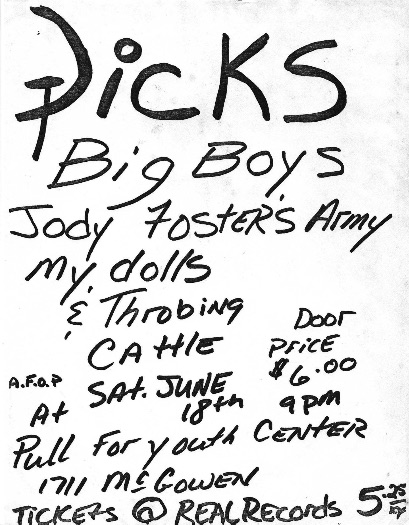 Dicks
Big Boys
Jody Foster's Army
My dolls
& Throbing
Cattle
Door
Price
$6.00
9pm
A.F.O.P
Sat. June
18th
At
Pull For youth Center
1711 McGowen
Tickets @ Real Records 5.25